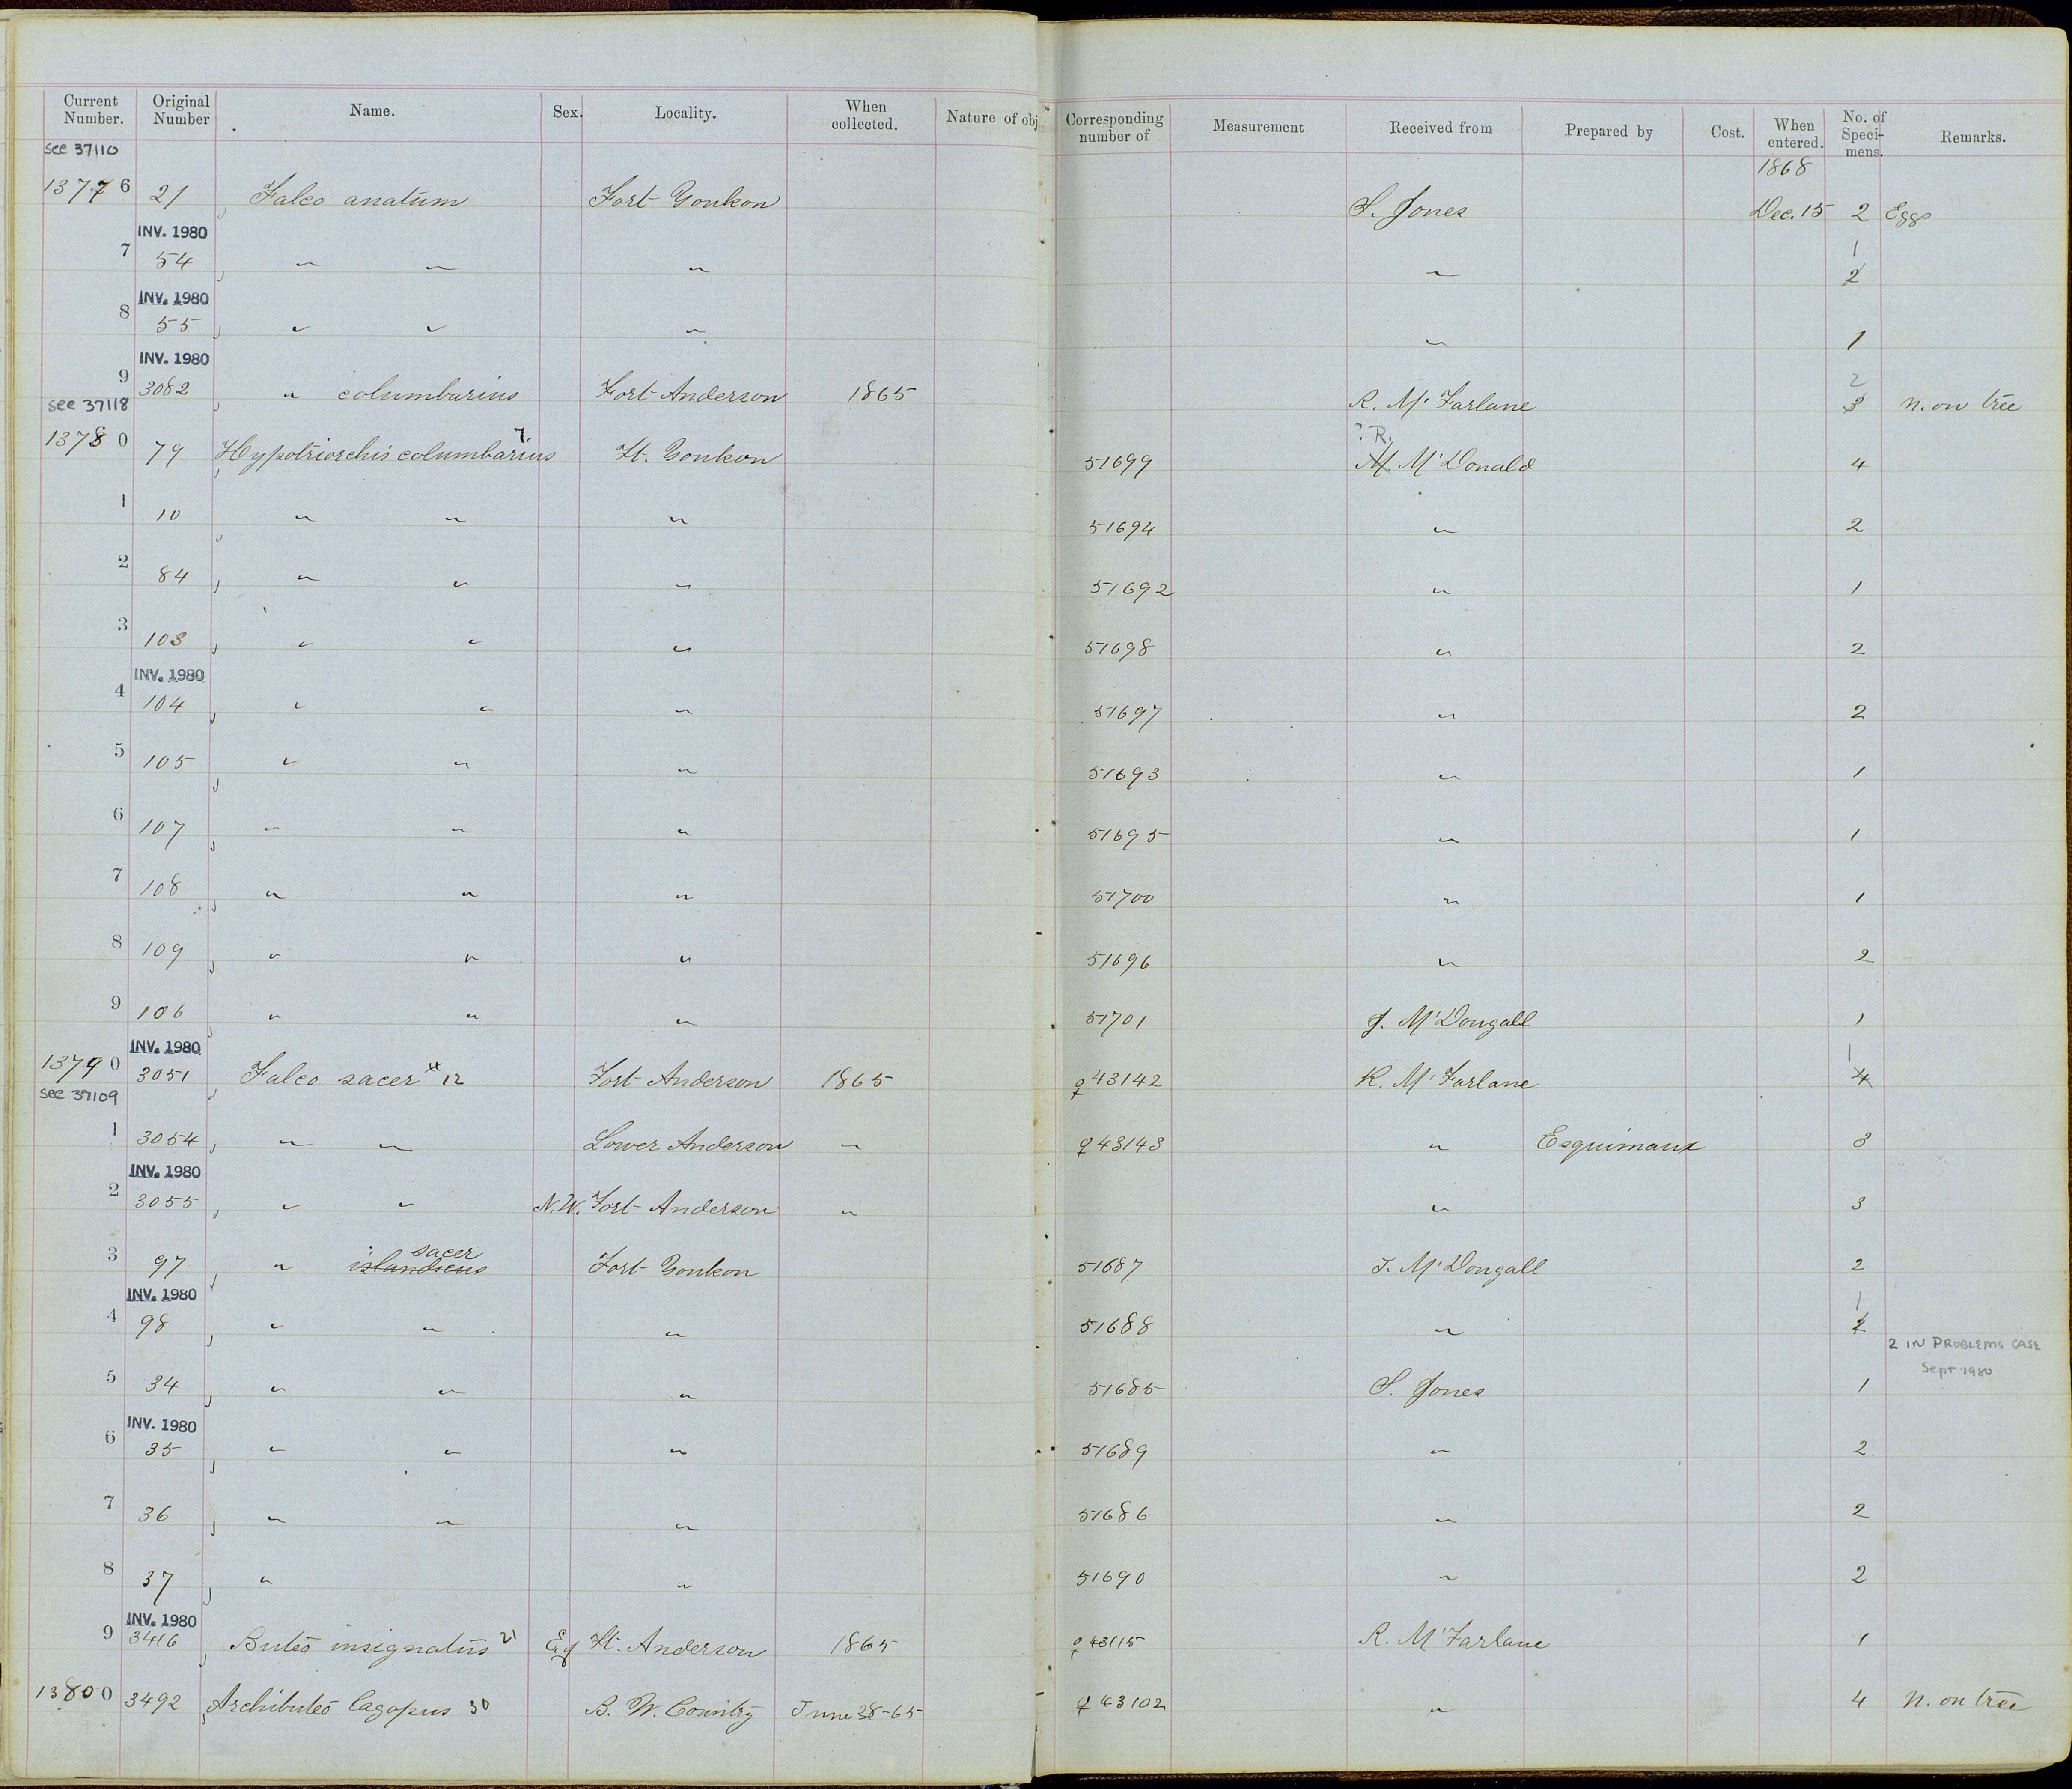 Current Number. Original Number Name. Sex. Locality. When collected. Nature of obj Corresponding number of Measurement Received from Prepared by Cost. When entered. No. of Speci-mens. Remarks.
see 37110
1868
13776 21 Falco anatum Fort Youkon S. Jones Dec. 15 2 Eggs
INV. 1980
7 54 " " " " 1 2
INV. 1980
8 55 " " " " 1
INV. 1980
9 3082 " columbarius Fort Anderson 1865 R. McFarlane 2 3 N. on tree
see 37118
13780 79 Hypotriorchis columbarius 7 Ft. Youkon 51699 ? R. M. McDonald 4
1 10 " " " 51694 " 2
2 84 " " " 51692 " 1
3 103 " " " 51698 " 2
INV. 1980
4 104 " " " 51697 " 2
5 105 " " " 51693 " 1
6 107 " " " 51695 " 1
7 108 " " " 51700 " 1
8 109 " " " 51696 " 2
9 106 " " " 51701 J. McDougall 1
INV. 1980
13790 3051 Falco sacer 12 Fort Anderson 1865 ♀ 43142 R. McFarlane 1 4
see 37109
1 3054 " " Lower Anderson " ♀ 43143 " Esquimaux 3
INV. 1980
2 3055 " " N.W. Fort Anderson " " 3
3 97 " islandicus sacer Fort Youkon 51687 J. McDougall 2
INV. 1980
4 98 " " " 51688 " 1 2
2 IN PROBLEMS CASE
Sept 1980
5 34 " " " 51685 S. Jones 1
INV. 1980
6 35 " " " 51689 " 2
7 36 " " " 51686 " 2
8 37 " " 51690 " 2
INV. 1980
9 3416 Buteo insignatus 21 Eg Ft. Anderson 1865 ♀ 43115 R. McFarlane 1
13800 3492 Archibuteo lagopus 30 B. W. Country June 28-65 ♀ 43102 " 4 N. on tree